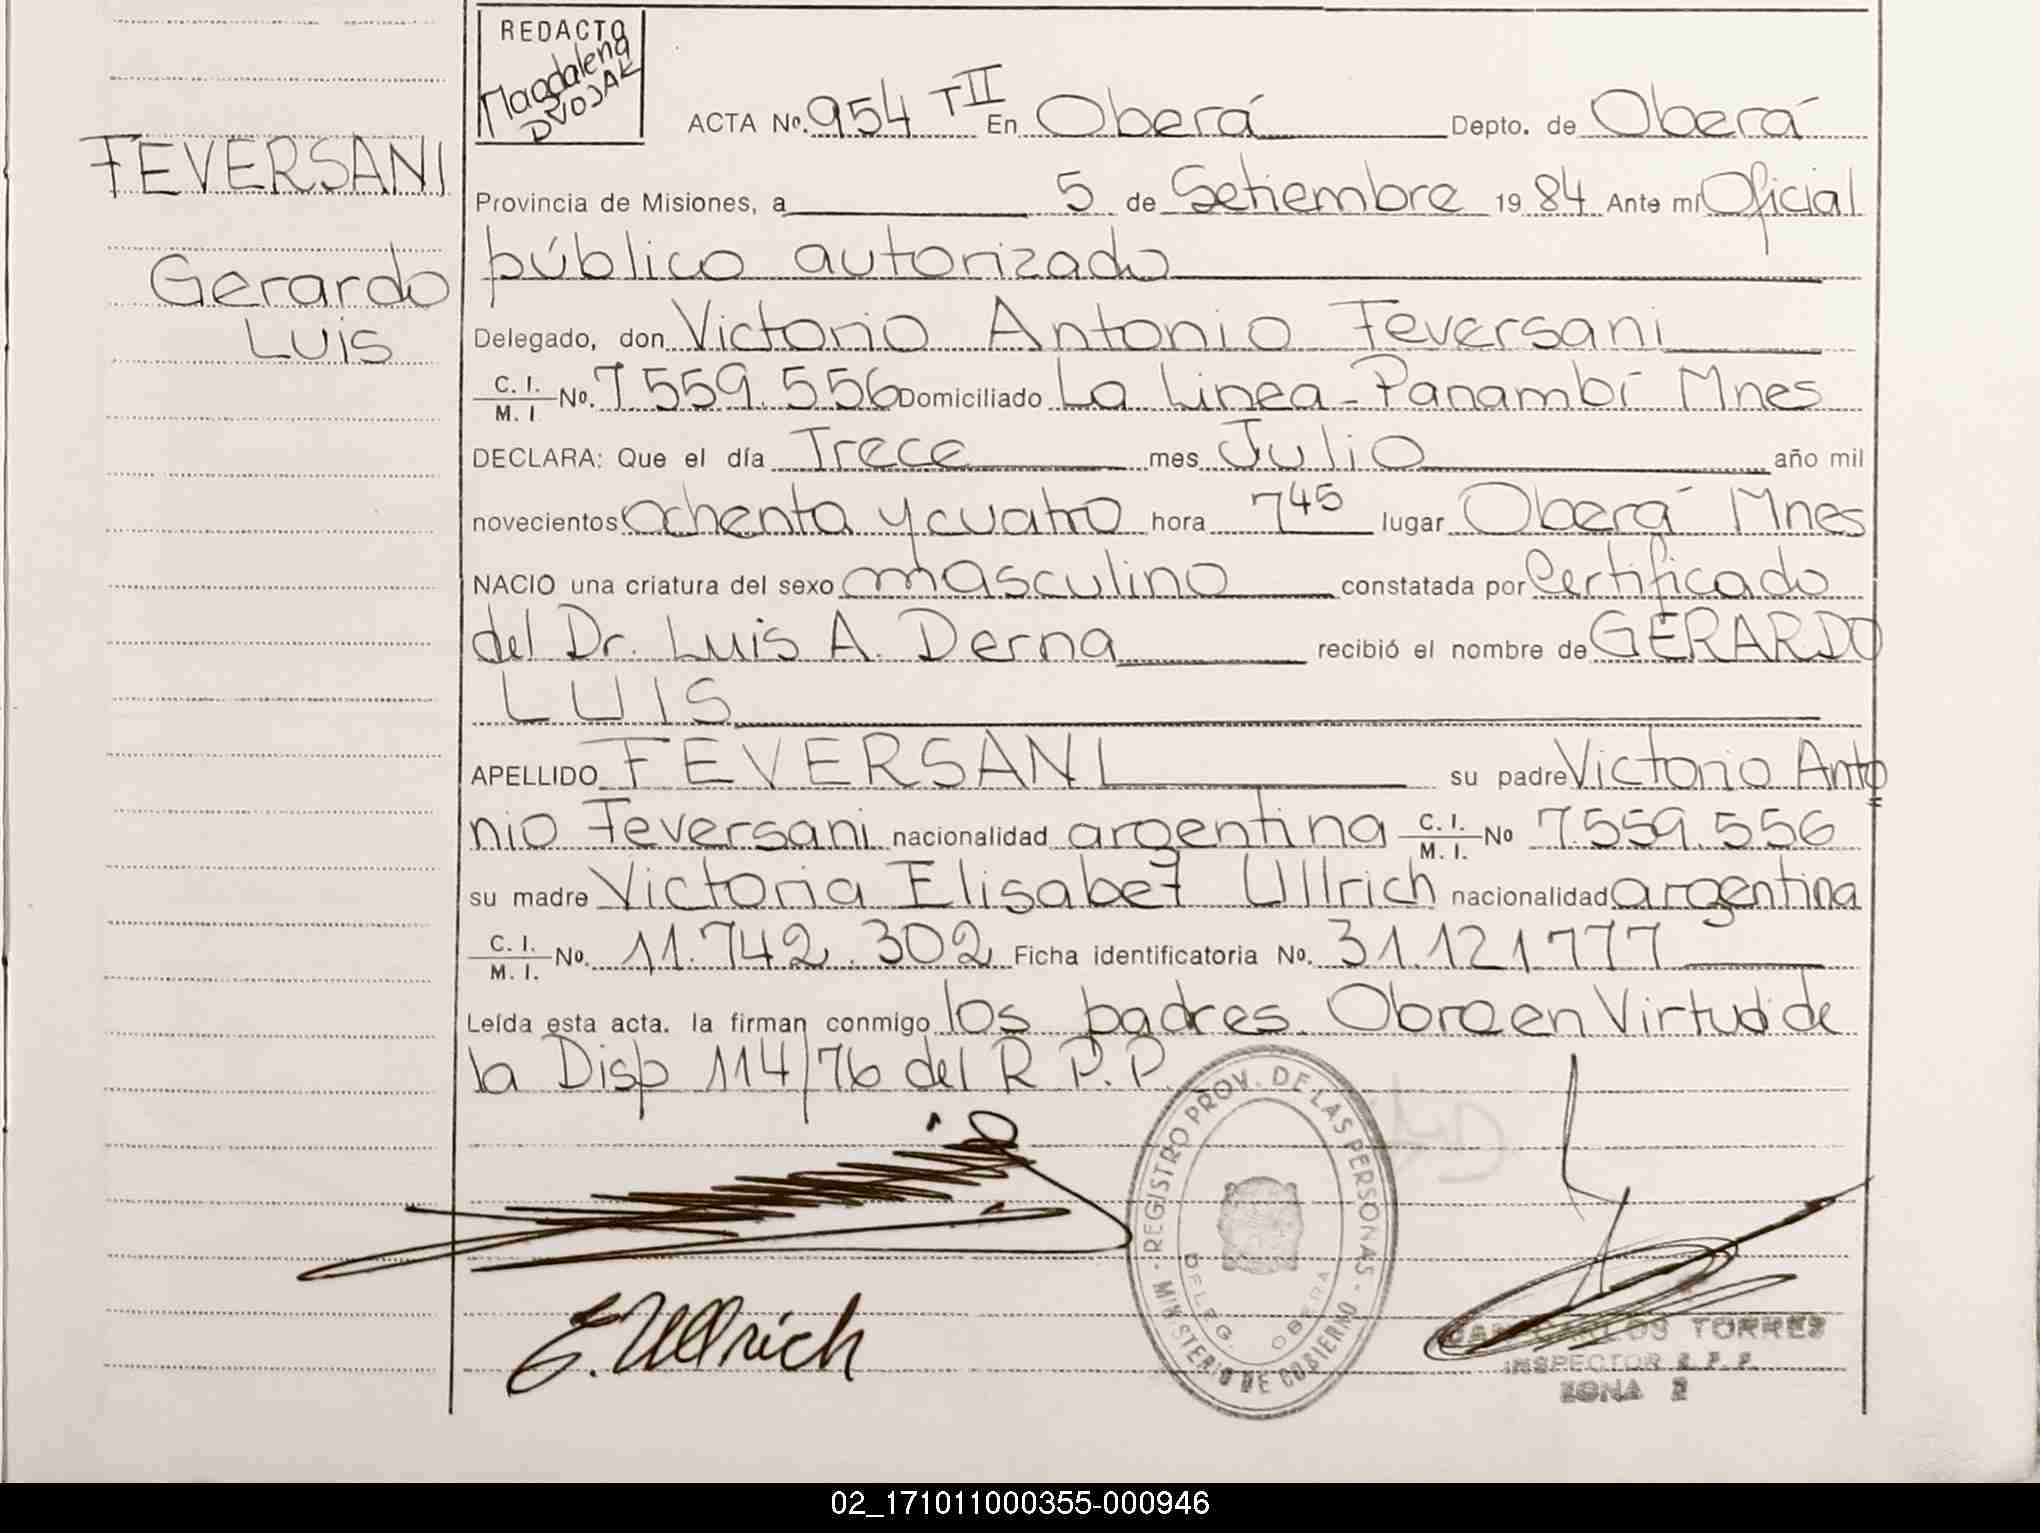 REDACTO
Magdalena
DVOJAK
ACTA Nº. 954 T II En Oberá Depto. de Oberá
FEVERSANI
Provincia de Misiones, a 5 de Setiembre 19 84 Ante mí Oficial
público autorizado
Gerardo
Luis
Delegado, don Victorio Antonio Feversani
C. I. / M. I No. 7.559.556 Domiciliado La Linea - Panambí Mnes
DECLARA: Que el día Trece mes Julio año mil
novecientos ochenta y cuatro hora 7 45 lugar Oberá Mnes
NACIO una criatura del sexo masculino constatada por Certificado
del Dr. Luis A. Derna recibió el nombre de GERARDO
LUIS
APELLIDO FEVERSANI su padre Victorio Anto
nio Feversani nacionalidad argentina C. I. / M. I. No 7.559.556
su madre Victoria Elisabet Ullrich nacionalidad argentina
C. I. / M. I. No. 11.742.302 Ficha identificatoria No. 31.121777
Leída esta acta. la firman conmigo los padres. Obro en Virtud de
la Disp 114/76 del R P.P.
REGISTRO PROV. DE LAS PERSONAS - MINISTERIO DE GOBIERNO
DELEG. OBERA
E. Ullrich
CARLOS TORRES
INSPECTOR R.P.P.
ZONA 2
02_171011000355-000946